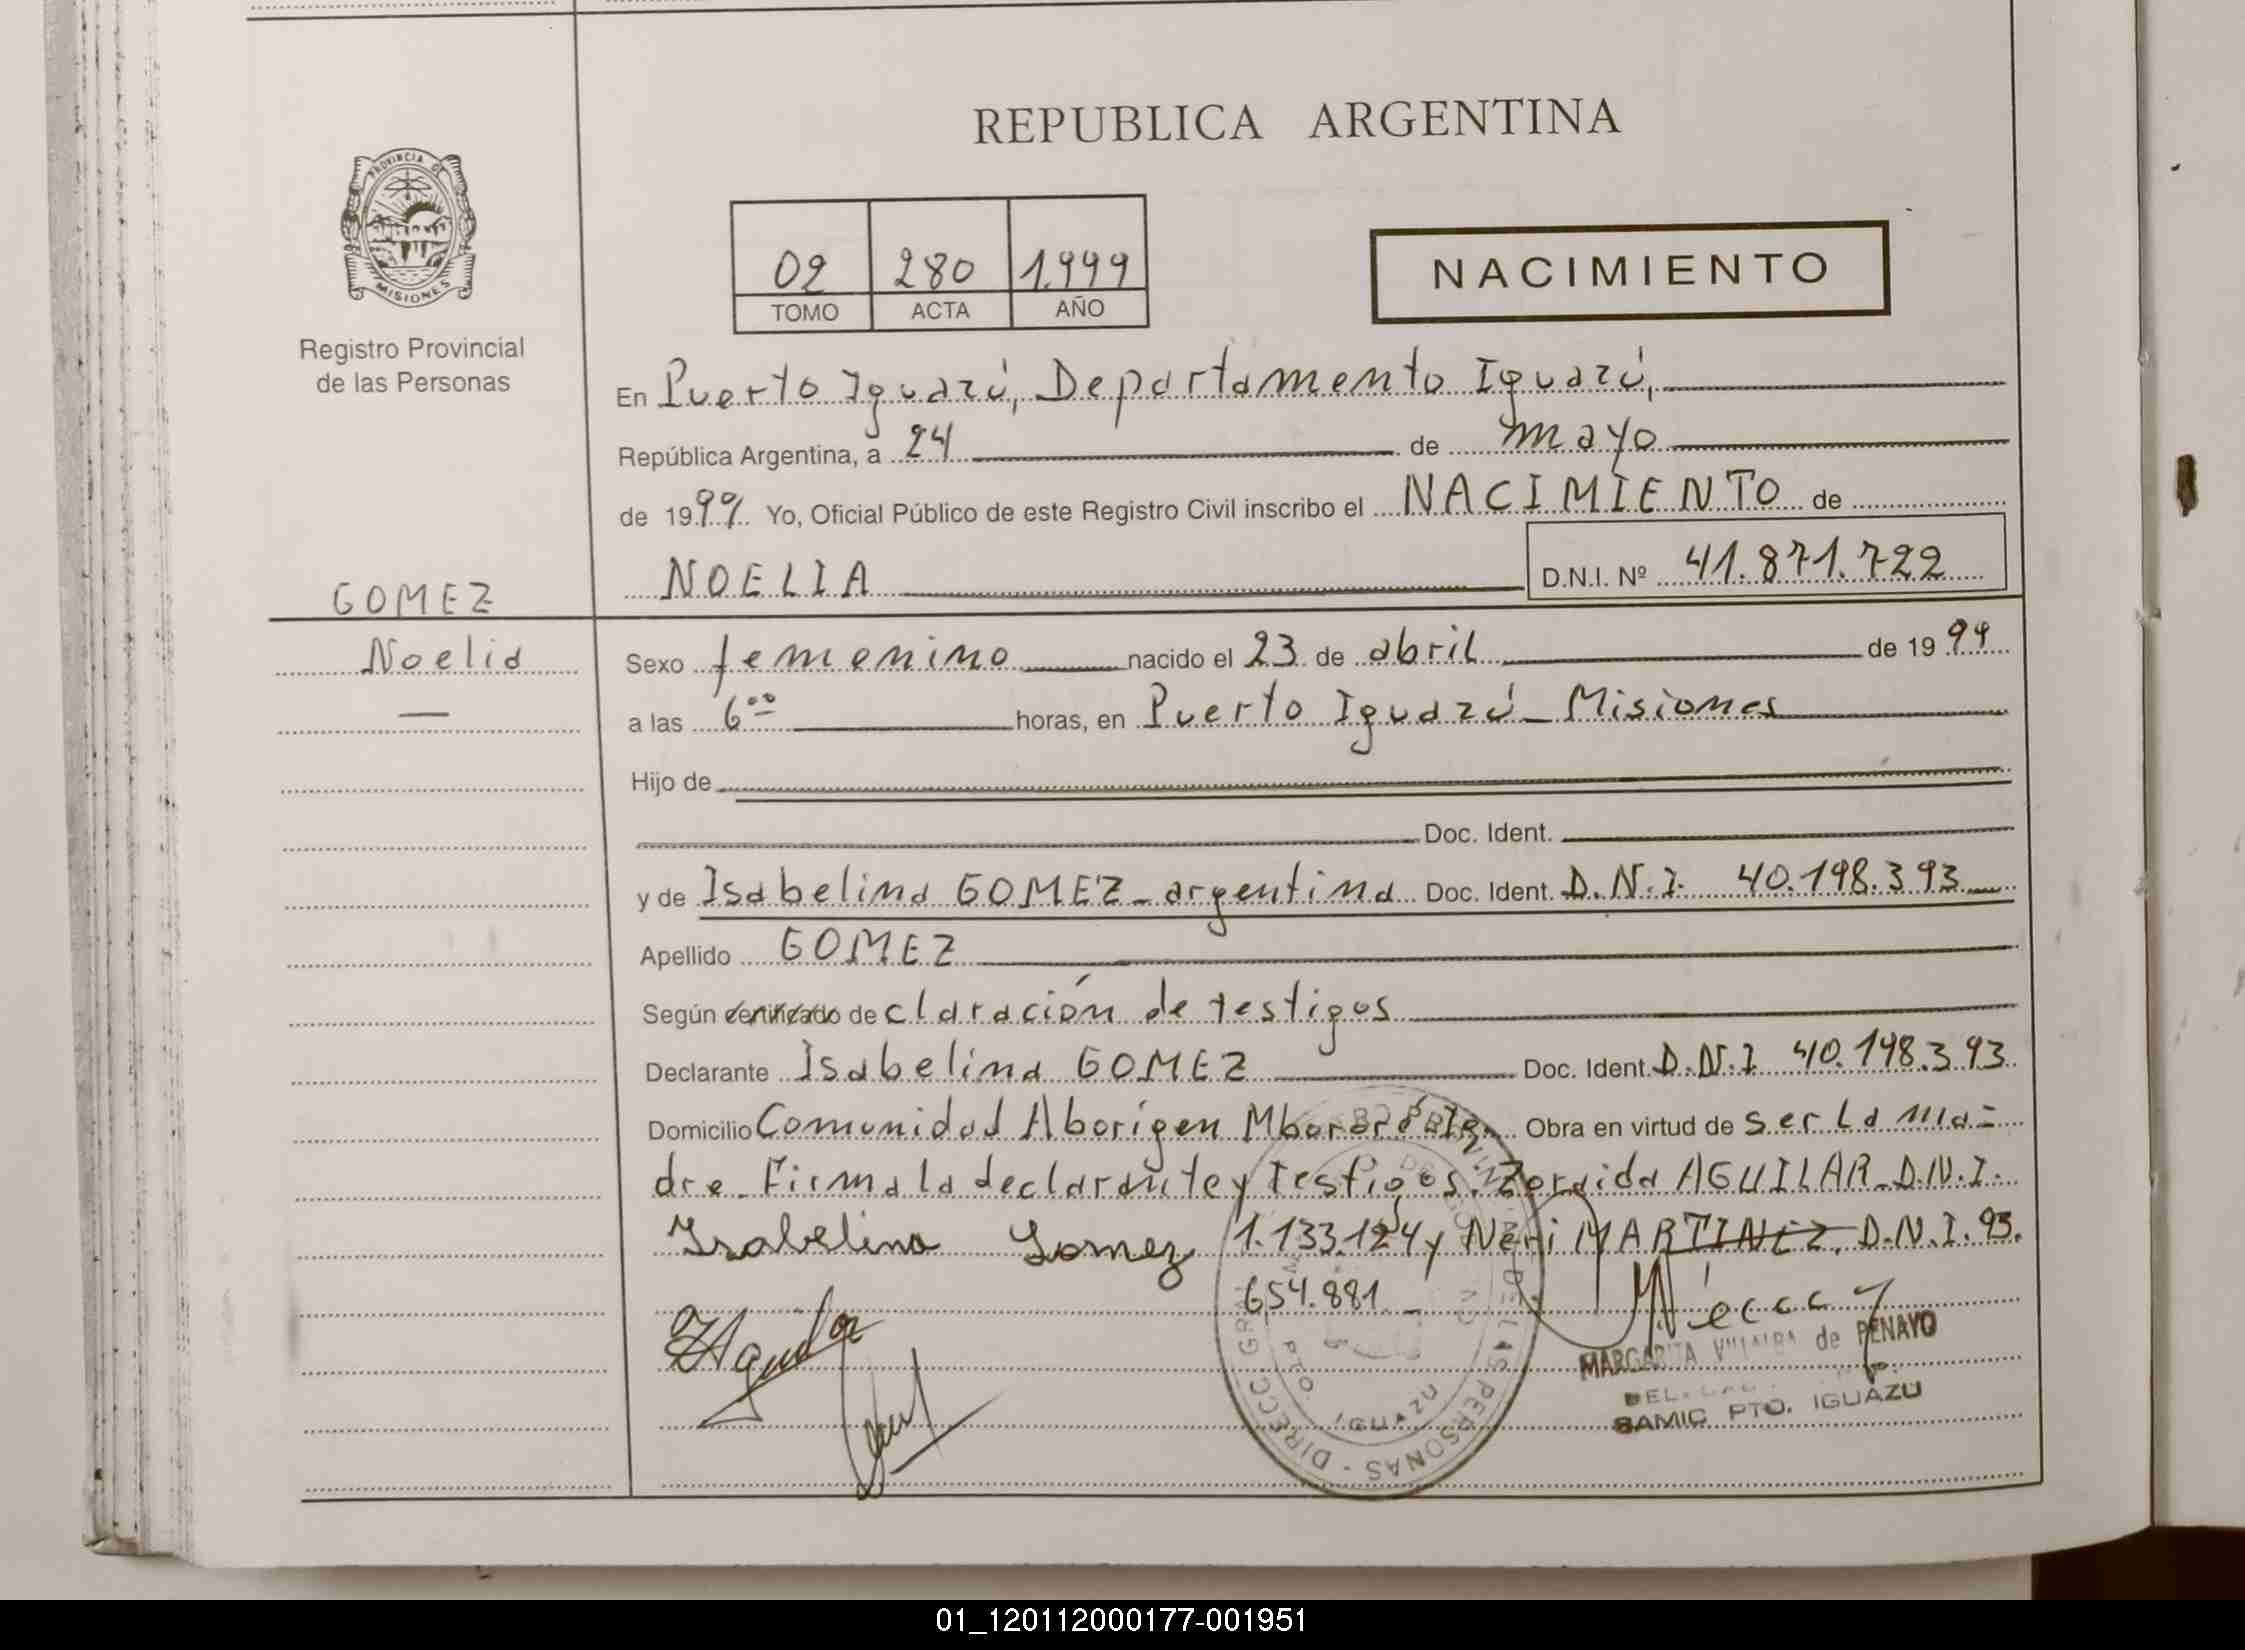 REPUBLICA ARGENTINA
PROVINCIA DE MISIONES
Registro Provincial
de las Personas
02 280 1.999
TOMO ACTA AÑO
NACIMIENTO
En Puerto Iguazú, Departamento Iguazú,
República Argentina, a 24 de mayo
de 1999 Yo, Oficial Público de este Registro Civil inscribo el NACIMIENTO de
NOELIA D.N.I. Nº 41.871.722
GOMEZ
Noelia
Sexo femenino nacido el 23 de abril de 1999
a las 6⁰⁰ horas, en Puerto Iguazú - Misiones
Hijo de
Doc. Ident.
y de Isabelina GOMEZ - argentina Doc. Ident. D.N.I. 40.198.393
Apellido GOMEZ
Según certificado declaración de testigos
Declarante Isabelina GOMEZ Doc. Ident. D.N.I 40.198.393
Domicilio Comunidad Aborígen Obra en virtud de ser la ma=
dre. Firma la declarante y testigos. Zoraida AGUILAR - D.N.I.
Isabelina Gomez 1.133.124 y Neri MARTINEZ. D.N.I. 93.
654.881 -
ZAguilar
MARGARITA VILLALBA de PENAYO
SAMIC PTO. IGUAZU
DE LAS PERSONAS - DIRECC GRAL
PTO. IGUAZU
01_120112000177-001951